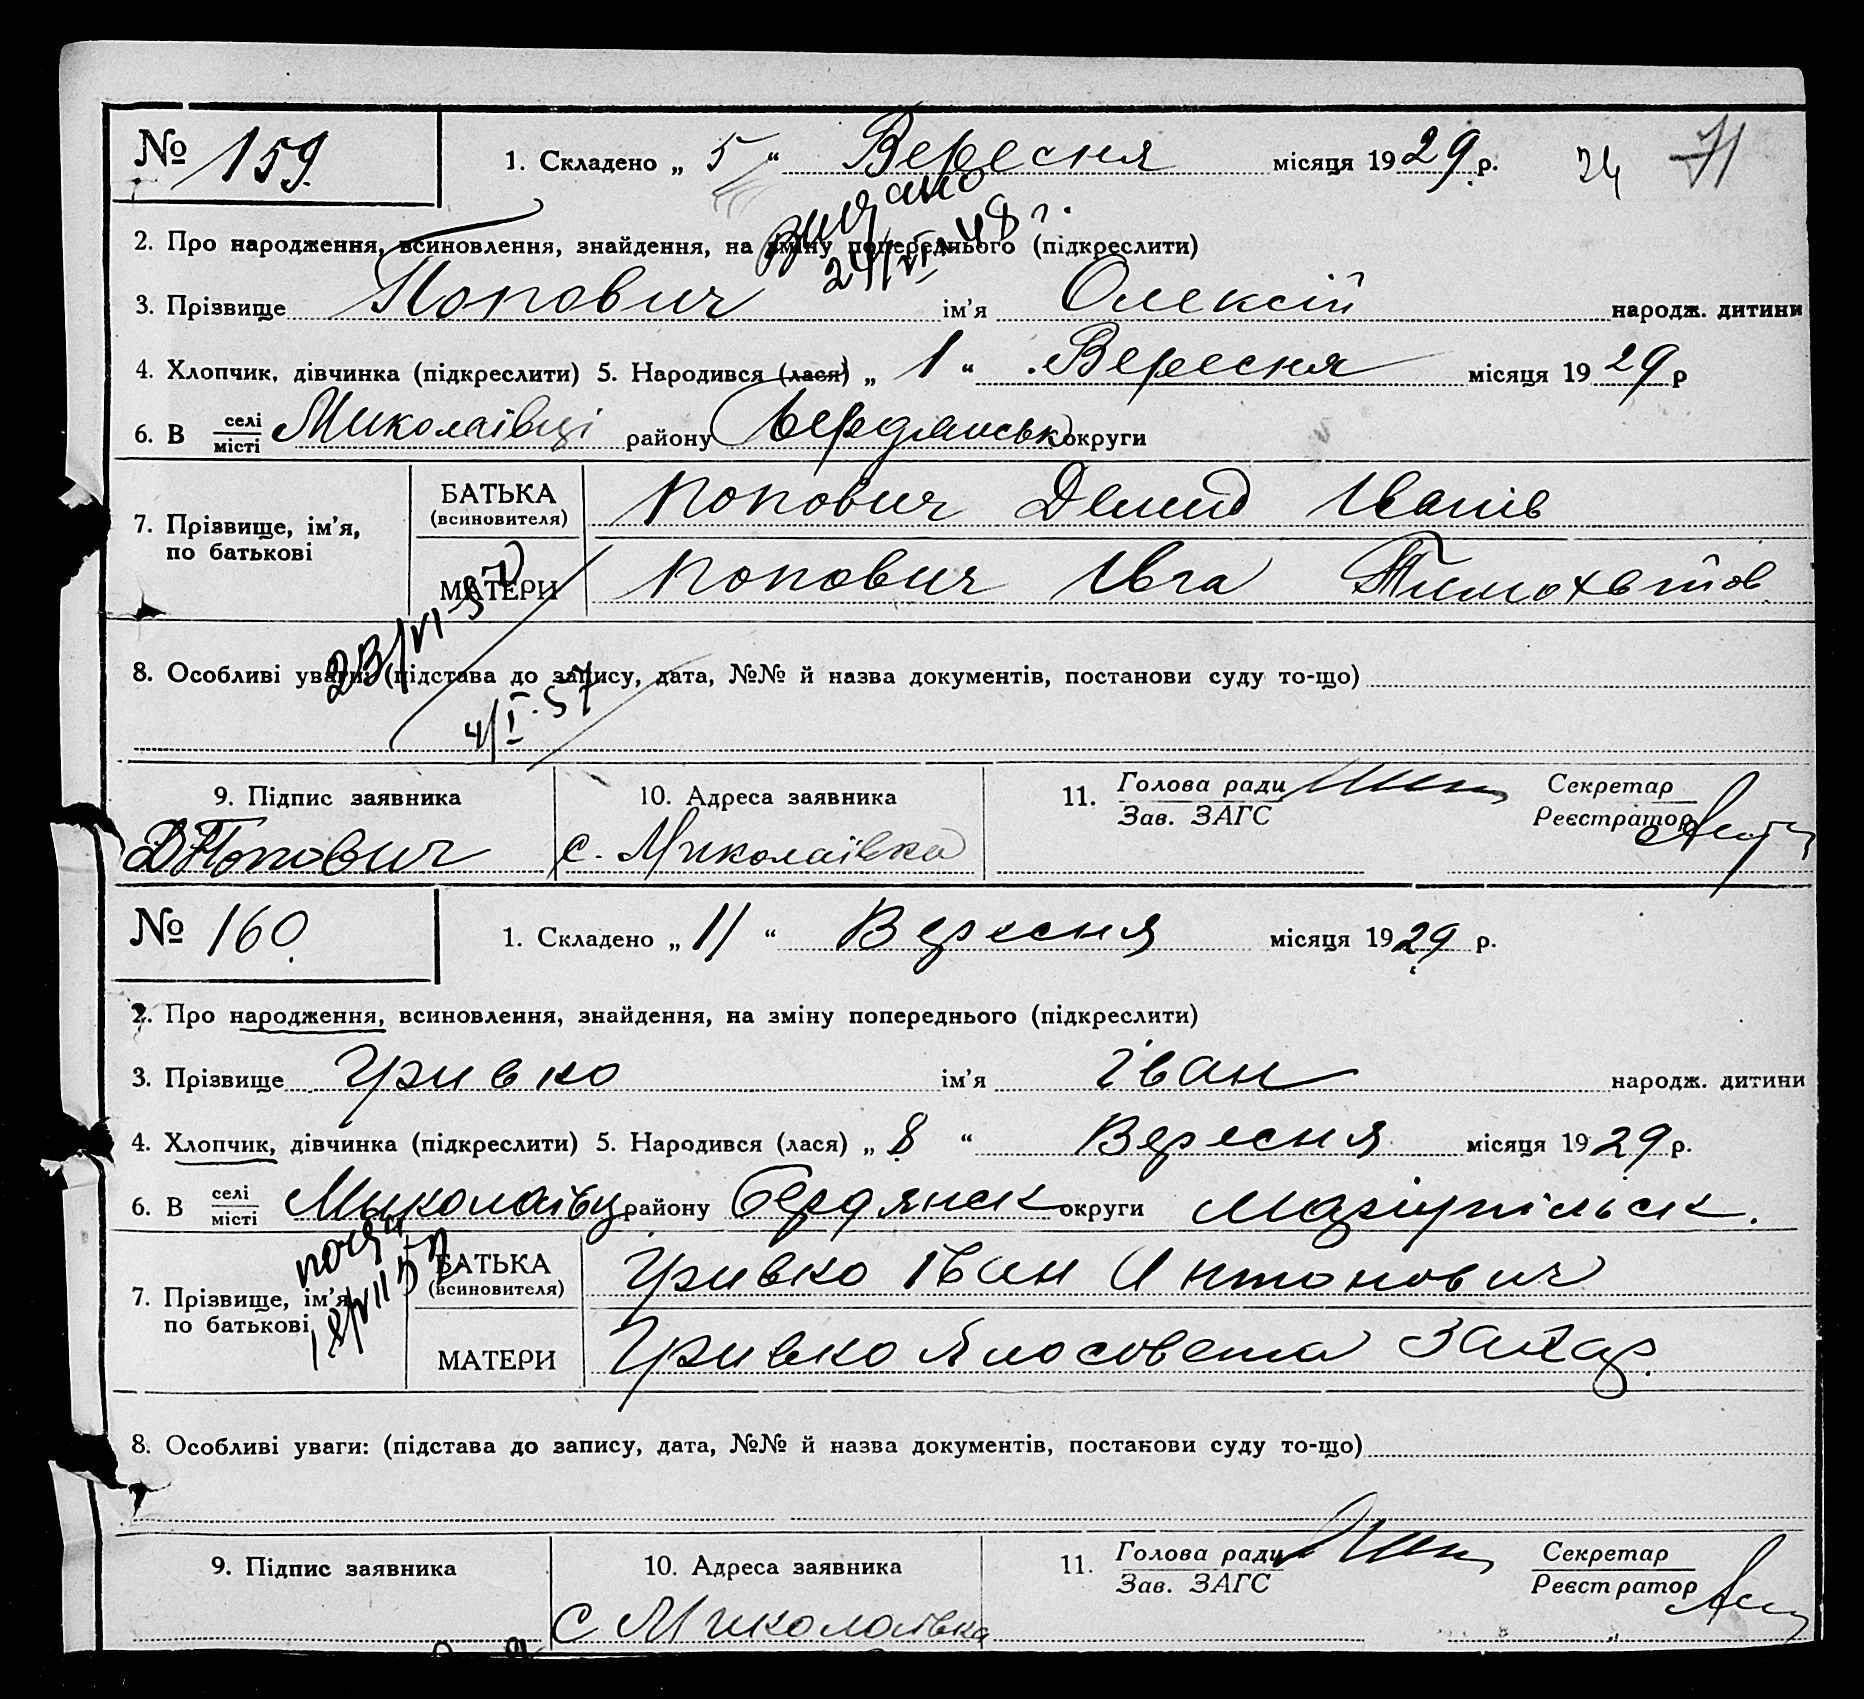 № 159. 1. Складено „ 5 “ Вересня місяця 1929 р. 74 71
видано
24/VI 48 г.
2. Про народження, всиновлення, знайдення, на зміну попереднього (підкреслити)
3. Прізвище Попович ім’я Олексій народж. дитини
4. Хлопчик, дівчинка (підкреслити) 5. Народився (лася) „ 1 “ Вересня місяця 1929 р
6. В селі/місті Миколаївці району Бердянськ округи
7. Прізвище, ім’я, по батькові
БАТЬКА (всиновителя) Попович Демид Іванів
МАТЕРИ Попович Івга
23/VI-57
8. Особливі уваги: (підстава до запису, дата, №№ й назва документів, постанови суду то-що)
4/I-57
9. Підпис заявника 10. Адреса заявника 11. Голова ради Секретар
Зав. ЗАГС Реєстратор
ДПопович с. Миколаївка
№ 160. 1. Складено „ 11 “ Вересня місяця 1929 р.
2. Про народження, всиновлення, знайдення, на зміну попереднього (підкреслити)
3. Прізвище Гривко ім’я Іван народж. дитини
4. Хлопчик, дівчинка (підкреслити) 5. Народився (лася) „ 8 “ Вересня місяця 1929 р.
6. В селі/місті Миколаївц району Бердянськ округи Маріупільськ.
7. Прізвище, ім’я, по батькові
18/VII 57
БАТЬКА (всиновителя) Гривко Іван Антонович
МАТЕРИ Гривко Ялосовета Захар.
8. Особливі уваги: (підстава до запису, дата, №№ й назва документів, постанови суду то-що)
9. Підпис заявника 10. Адреса заявника 11. Голова ради Секретар
Зав. ЗАГС Реєстратор
с Миколаївка